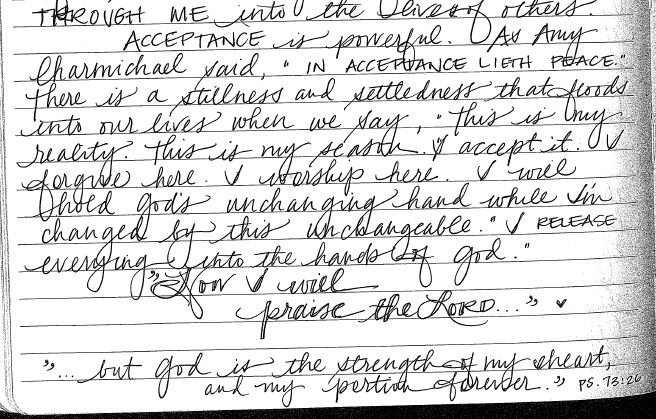 THROUGH ME into the lives of others.
ACCEPTANCE is powerful. As Amy
Charmichael said, "IN ACCEPTANCE LIETH PEACE."
There is a stillness and settledness that floods
into our lives when we say, "This is my
reality. This is my season. I accept it. I
forgive here. I worship here. I will
hold God's unchanging hand while I'm
changed by this unchangeable." I RELEASE
everying into the hands of God."
"Now I will
praise the LORD..." ♥
"... but God is the strength of my heart,
and my portion forever." PS. 73:26